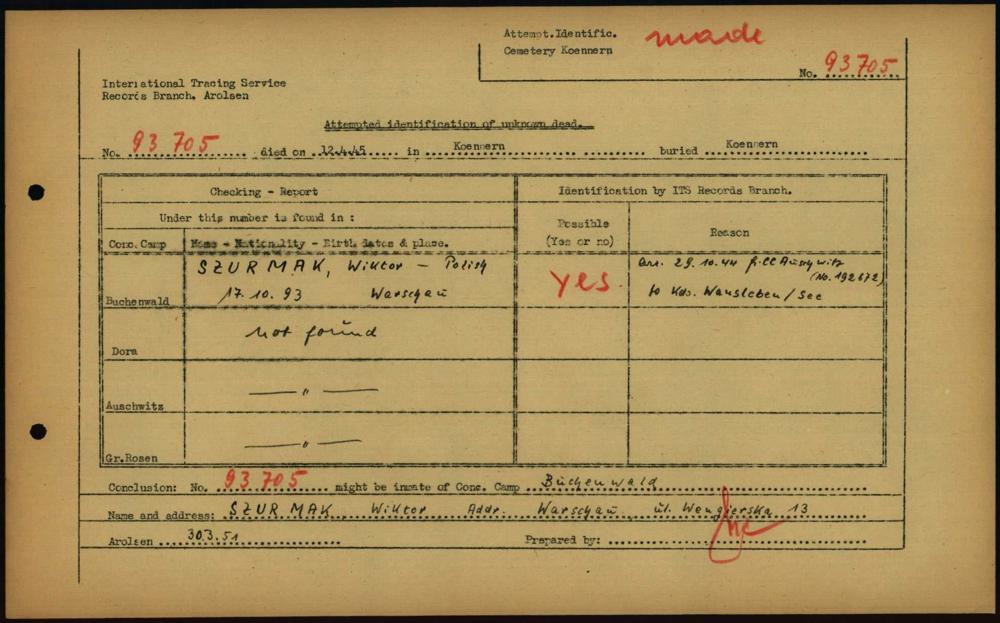 Attempt.Identific. made
Cemetery Koennern
No. 93705
International Tracing Service
Records Branch. Arolsen
Attempted identification of unknown dead.
No. 93 705 died on 12.4.45 in Koennern buried Koennern
Checking - Report
Identification by ITS Records Branch.
Under this number is found in :
Possible
(Yes or no)
Reason
Conc. Camp
Name - Nationality - Birth dates & place.
Buchenwald
SZURMAK, Wiktor - Polish
17.10.93 Warschau
yes
arr. 29.10.44 f. CC Auschwitz
(No. 192672)
to Kdo. Wansleben/See
Dora
not found
Auschwitz
— " —
Gr.Rosen
— " —
Conclusion: No. 93 705 might be inmate of Conc. Camp Buchenwald
Name and address: SZURMAK Wiktor Addr. Warschau, ul. Wengierska 13
Arolsen 30.3.51 Prepared by: